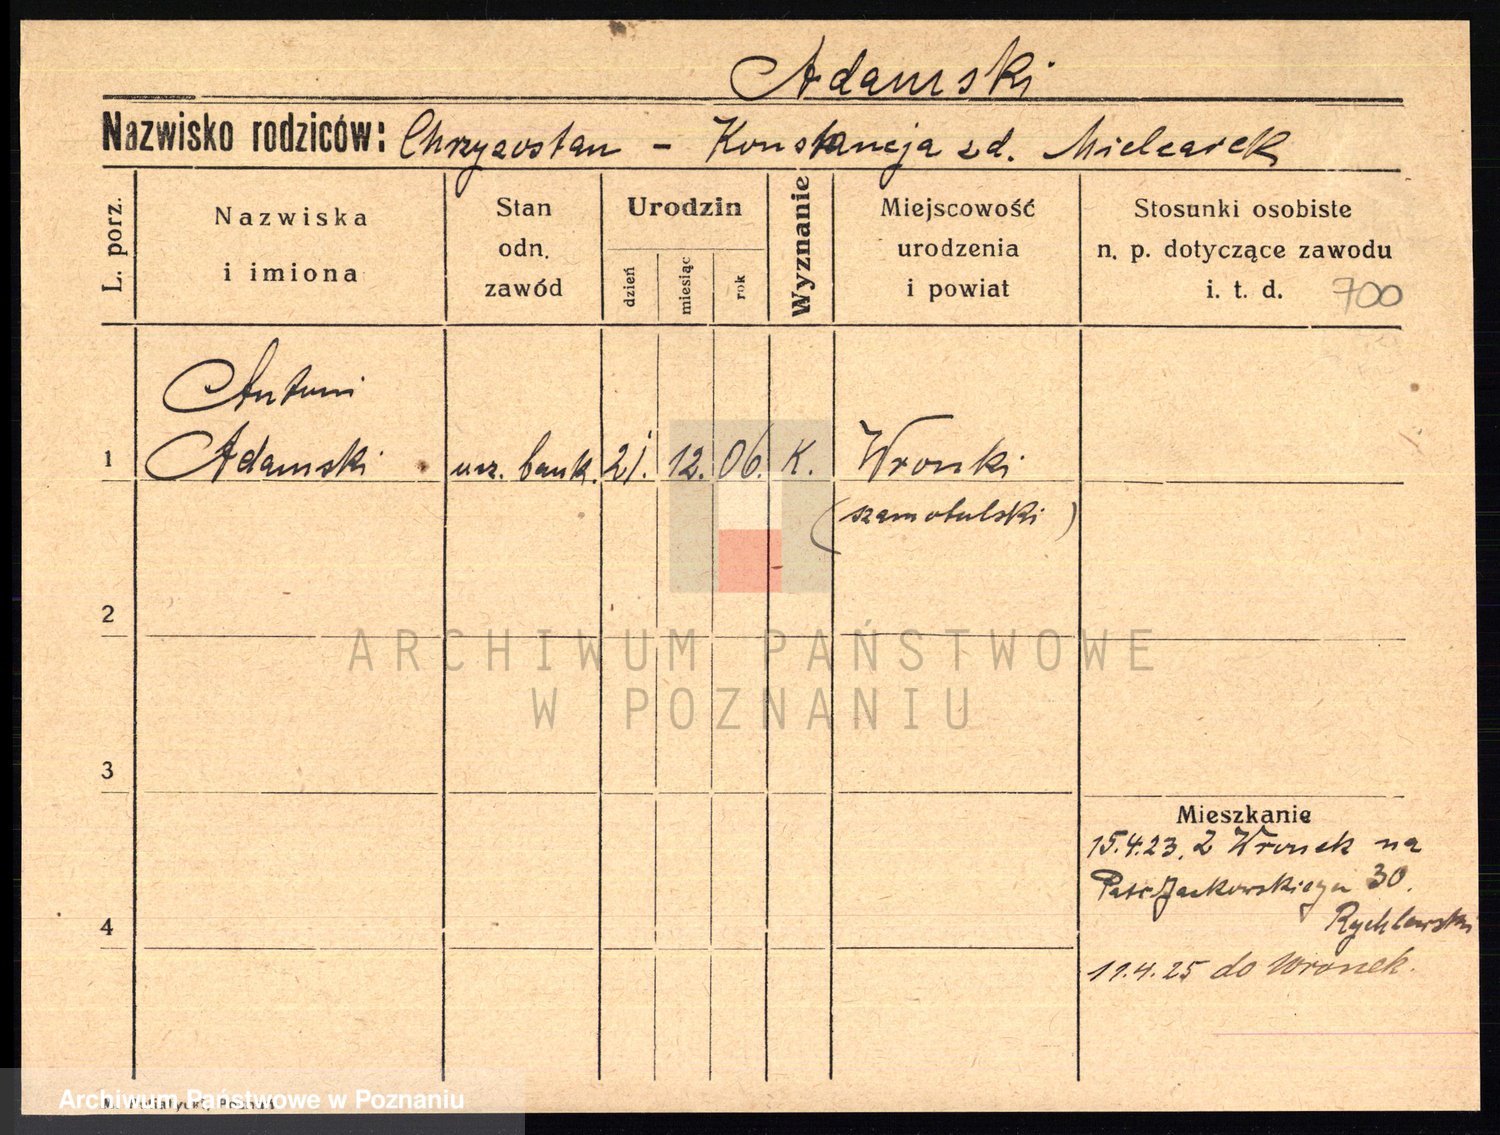 Adamski
Nazwisko rodziców: Chryzostan - Konstancja zd. Mielcarek
L. porz.
Nazwiska
i imiona
Stan
odn.
zawód
Urodzin
dzień
miesiąc
rok
Wyznanie
Miejscowość
urodzenia
i powiat
Stosunki osobiste
n. p. dotyczące zawodu
i. t. d.
700
Antoni
1 Adamski urz. bank. 21. 12. 06. K. Wronki
(szamotulski)
2
ARCHIWUM PAŃSTWOWE
W POZNANIU
3
Mieszkanie
15.4.23. Z Wronek na
Patr Jackowskiego 30.
4
Rychlewski
11.4.25 do Wronek.
Archiwum Państwowe w Poznaniu